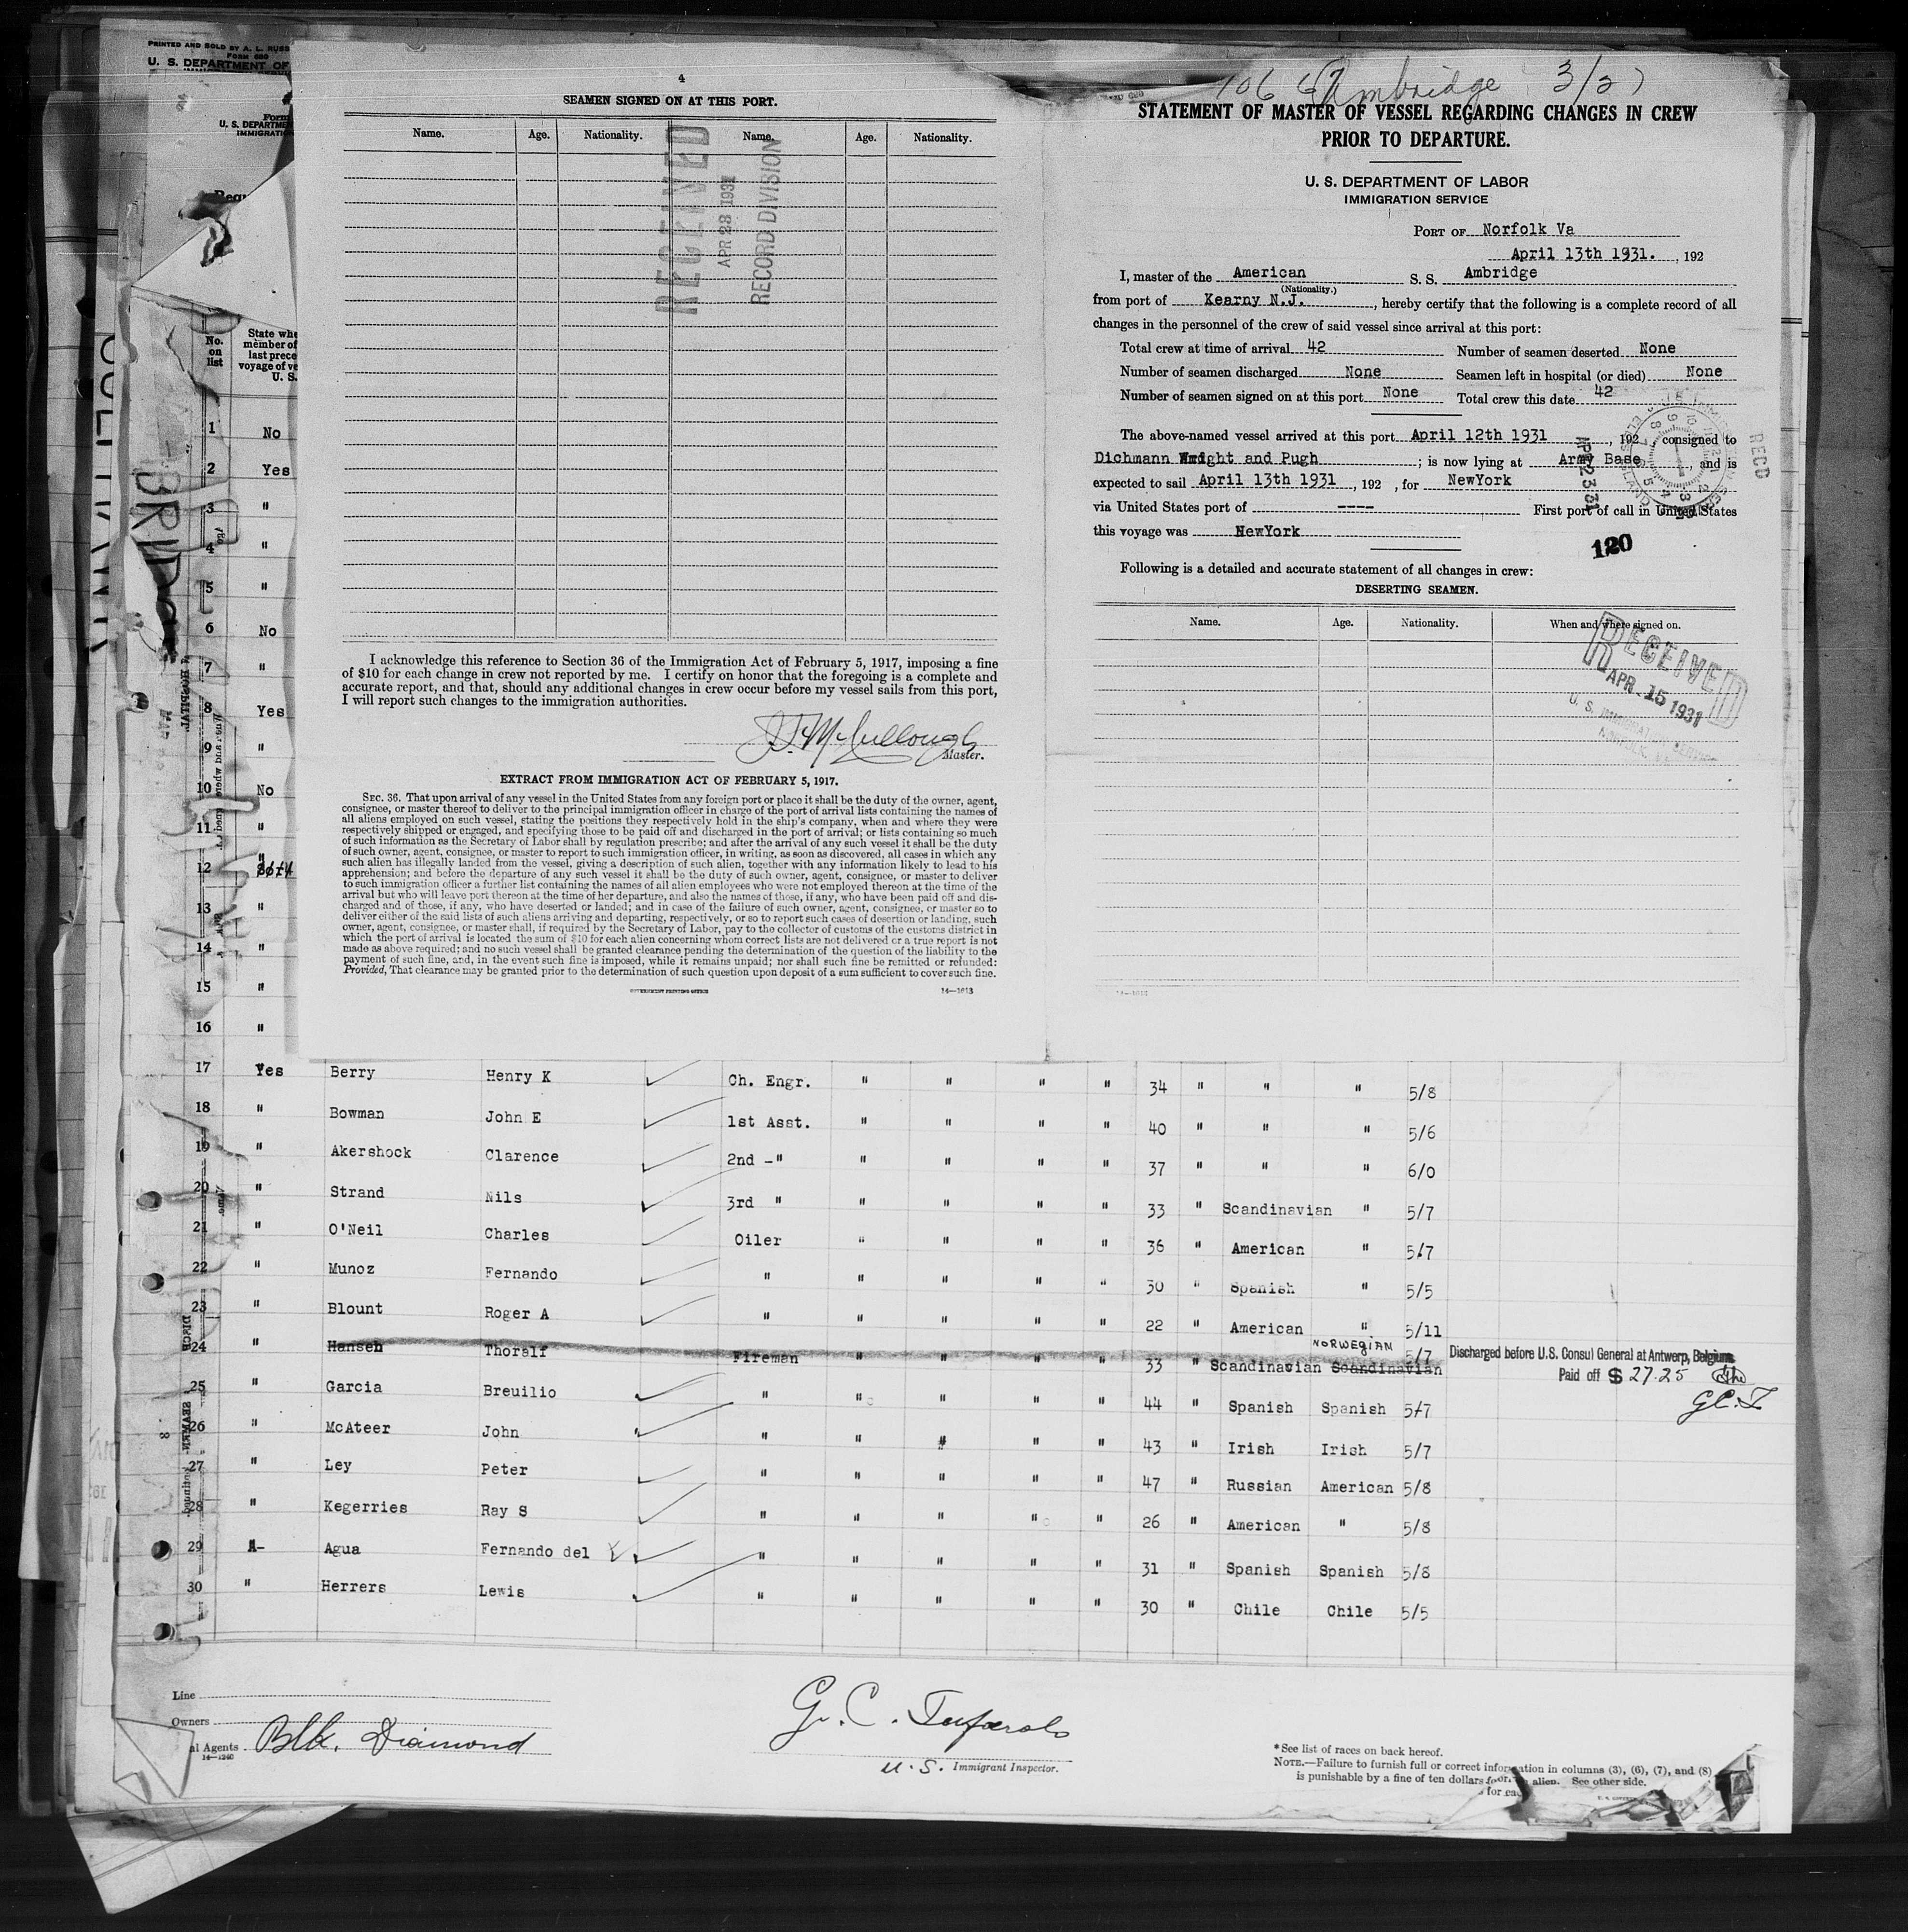 PRINTED AND SOLD BY A. L. RUSS
FORM 680
U. S. DEPARTMENT OF
Form
U. S. DEPARTME
IMMIGRATI
4
SEAMEN SIGNED ON AT THIS PORT.
Name. Age. Nationality. Name. Age. Nationality.
RECEIVED
APR 28 1931
RECORD DIVISION
I acknowledge this reference to Section 36 of the Immigration Act of February 5, 1917, imposing a fine
of $10 for each change in crew not reported by me. I certify on honor that the foregoing is a complete and
accurate report, and that, should any additional changes in crew occur before my vessel sails from this port,
I will report such changes to the immigration authorities.
Master.
EXTRACT FROM IMMIGRATION ACT OF FEBRUARY 5, 1917.
SEC. 36. That upon arrival of any vessel in the United States from any foreign port or place it shall be the duty of the owner, agent,
consignee, or master thereof to deliver to the principal immigration officer in charge of the port of arrival lists containing the names of
all aliens employed on such vessel, stating the positions they respectively hold in the ship's company, when and where they were
respectively shipped or engaged, and specifying those to be paid off and discharged in the port of arrival; or lists containing so much
of such information as the Secretary of Labor shall by regulation prescribe; and after the arrival of any such vessel it shall be the duty
of such owner, agent, consignee, or master to report to such immigration officer, in writing, as soon as discovered, all cases in which any
such alien has illegally landed from the vessel, giving a description of such alien, together with any information likely to lead to his
apprehension; and before the departure of any such vessel it shall be the duty of such owner, agent, consignee, or master to deliver
to such immigration officer a further list containing the names of all alien employees who were not employed thereon at the time of the
arrival but who will leave port thereon at the time of her departure, and also the names of those, if any, who have been paid off and dis-
charged and of those, if any, who have deserted or landed; and in case of the failure of such owner, agent, consignee, or master so to
deliver either of the said lists of such aliens arriving and departing, respectively, or so to report such cases of desertion or landing, such
owner, agent, consignee, or master shall, if required by the Secretary of Labor, pay to the collector of customs of the customs district in
which the port of arrival is located the sum of $10 for each alien concerning whom correct lists are not delivered or a true report is not
made as above required; and no such vessel shall be granted clearance pending the determination of the question of the liability to the
payment of such fine, and, in the event such fine is imposed, while it remains unpaid; nor shall such fine be remitted or refunded:
Provided, That clearance may be granted prior to the determination of such question upon deposit of a sum sufficient to cover such fine.
GOVERNMENT PRINTING OFFICE 14—1613
Ambridge 3/27
STATEMENT OF MASTER OF VESSEL REGARDING CHANGES IN CREW
PRIOR TO DEPARTURE.
U. S. DEPARTMENT OF LABOR
IMMIGRATION SERVICE
PORT OF Norfolk Va
April 13th 1931. , 192
I, master of the American S. S. Ambridge
(Nationality.)
from port of Kearny N.J. , hereby certify that the following is a complete record of all
changes in the personnel of the crew of said vessel since arrival at this port:
Total crew at time of arrival 42 Number of seamen deserted None
Number of seamen discharged None Seamen left in hospital (or died) None
Number of seamen signed on at this port None Total crew this date 42
The above-named vessel arrived at this port April 12th 1931 , 192 , consigned to
Dichmann Wright and Pugh ; is now lying at Army Base , and is
expected to sail April 13th 1931 , 192 , for NewYork
via United States port of ---- First port of call in United States
this voyage was NewYork
120
RECD
Following is a detailed and accurate statement of all changes in crew:
DESERTING SEAMEN.
Name. Age. Nationality. When and where signed on.
RECEIVED
APR 15 1931
U. S. IMMIGRATION SERVICE
NORFOLK, VA.
14—1613
No. on list
State whe
member of
last prece
voyage of ve
U. S.
1 No
2 Yes
3 "
4 "
5 "
6 No
7 "
8 Yes
9 "
10 No
11 "
12 "
13 "
14 "
15 "
16 "
17 Yes Berry Henry K Ch. Engr. " " " " 34 " " " 5/8
18 " Bowman John E 1st Asst. " " " " 40 " " " 5/6
19 " Akershock Clarence 2nd -" " " " " 37 " " " 6/0
20 " Strand Nils 3rd " " " " " 33 " Scandinavian " 5/7
21 " O'Neil Charles Oiler " " " " 36 " American " 5/7
22 " Munoz Fernando " " " " " 30 " Spanish " 5/5
23 " Blount Roger A " " " " " 22 " American " 5/11
24 " Hansen Thoralf Fireman " " " " 33 " Scandinavian Scandinavian NORWEGIAN 5/7 Discharged before U.S. Consul General at Antwerp, Belgium.
Paid off $ 27.25
G.C.T
25 " Garcia Breuilio " " " " " 44 " Spanish Spanish 5/7
26 " McAteer John " " " " " 43 " Irish Irish 5/7
27 " Ley Peter " " " " " 47 " Russian American 5/8
28 " Kegerries Ray S " " " " " 26 " American " 5/8
29 A- Agua Fernando del " " " " " 31 " Spanish Spanish 5/8
30 " Herrers Lewis " " " " " 30 " Chile Chile 5/5
Line
Owners
al Agents Blk. Diamond
14—1240
G. C.
U. S. Immigrant Inspector.
*See list of races on back hereof.
NOTE.—Failure to furnish full or correct information in columns (3), (6), (7), and (8)
is punishable by a fine of ten dollars for alien. See other side.